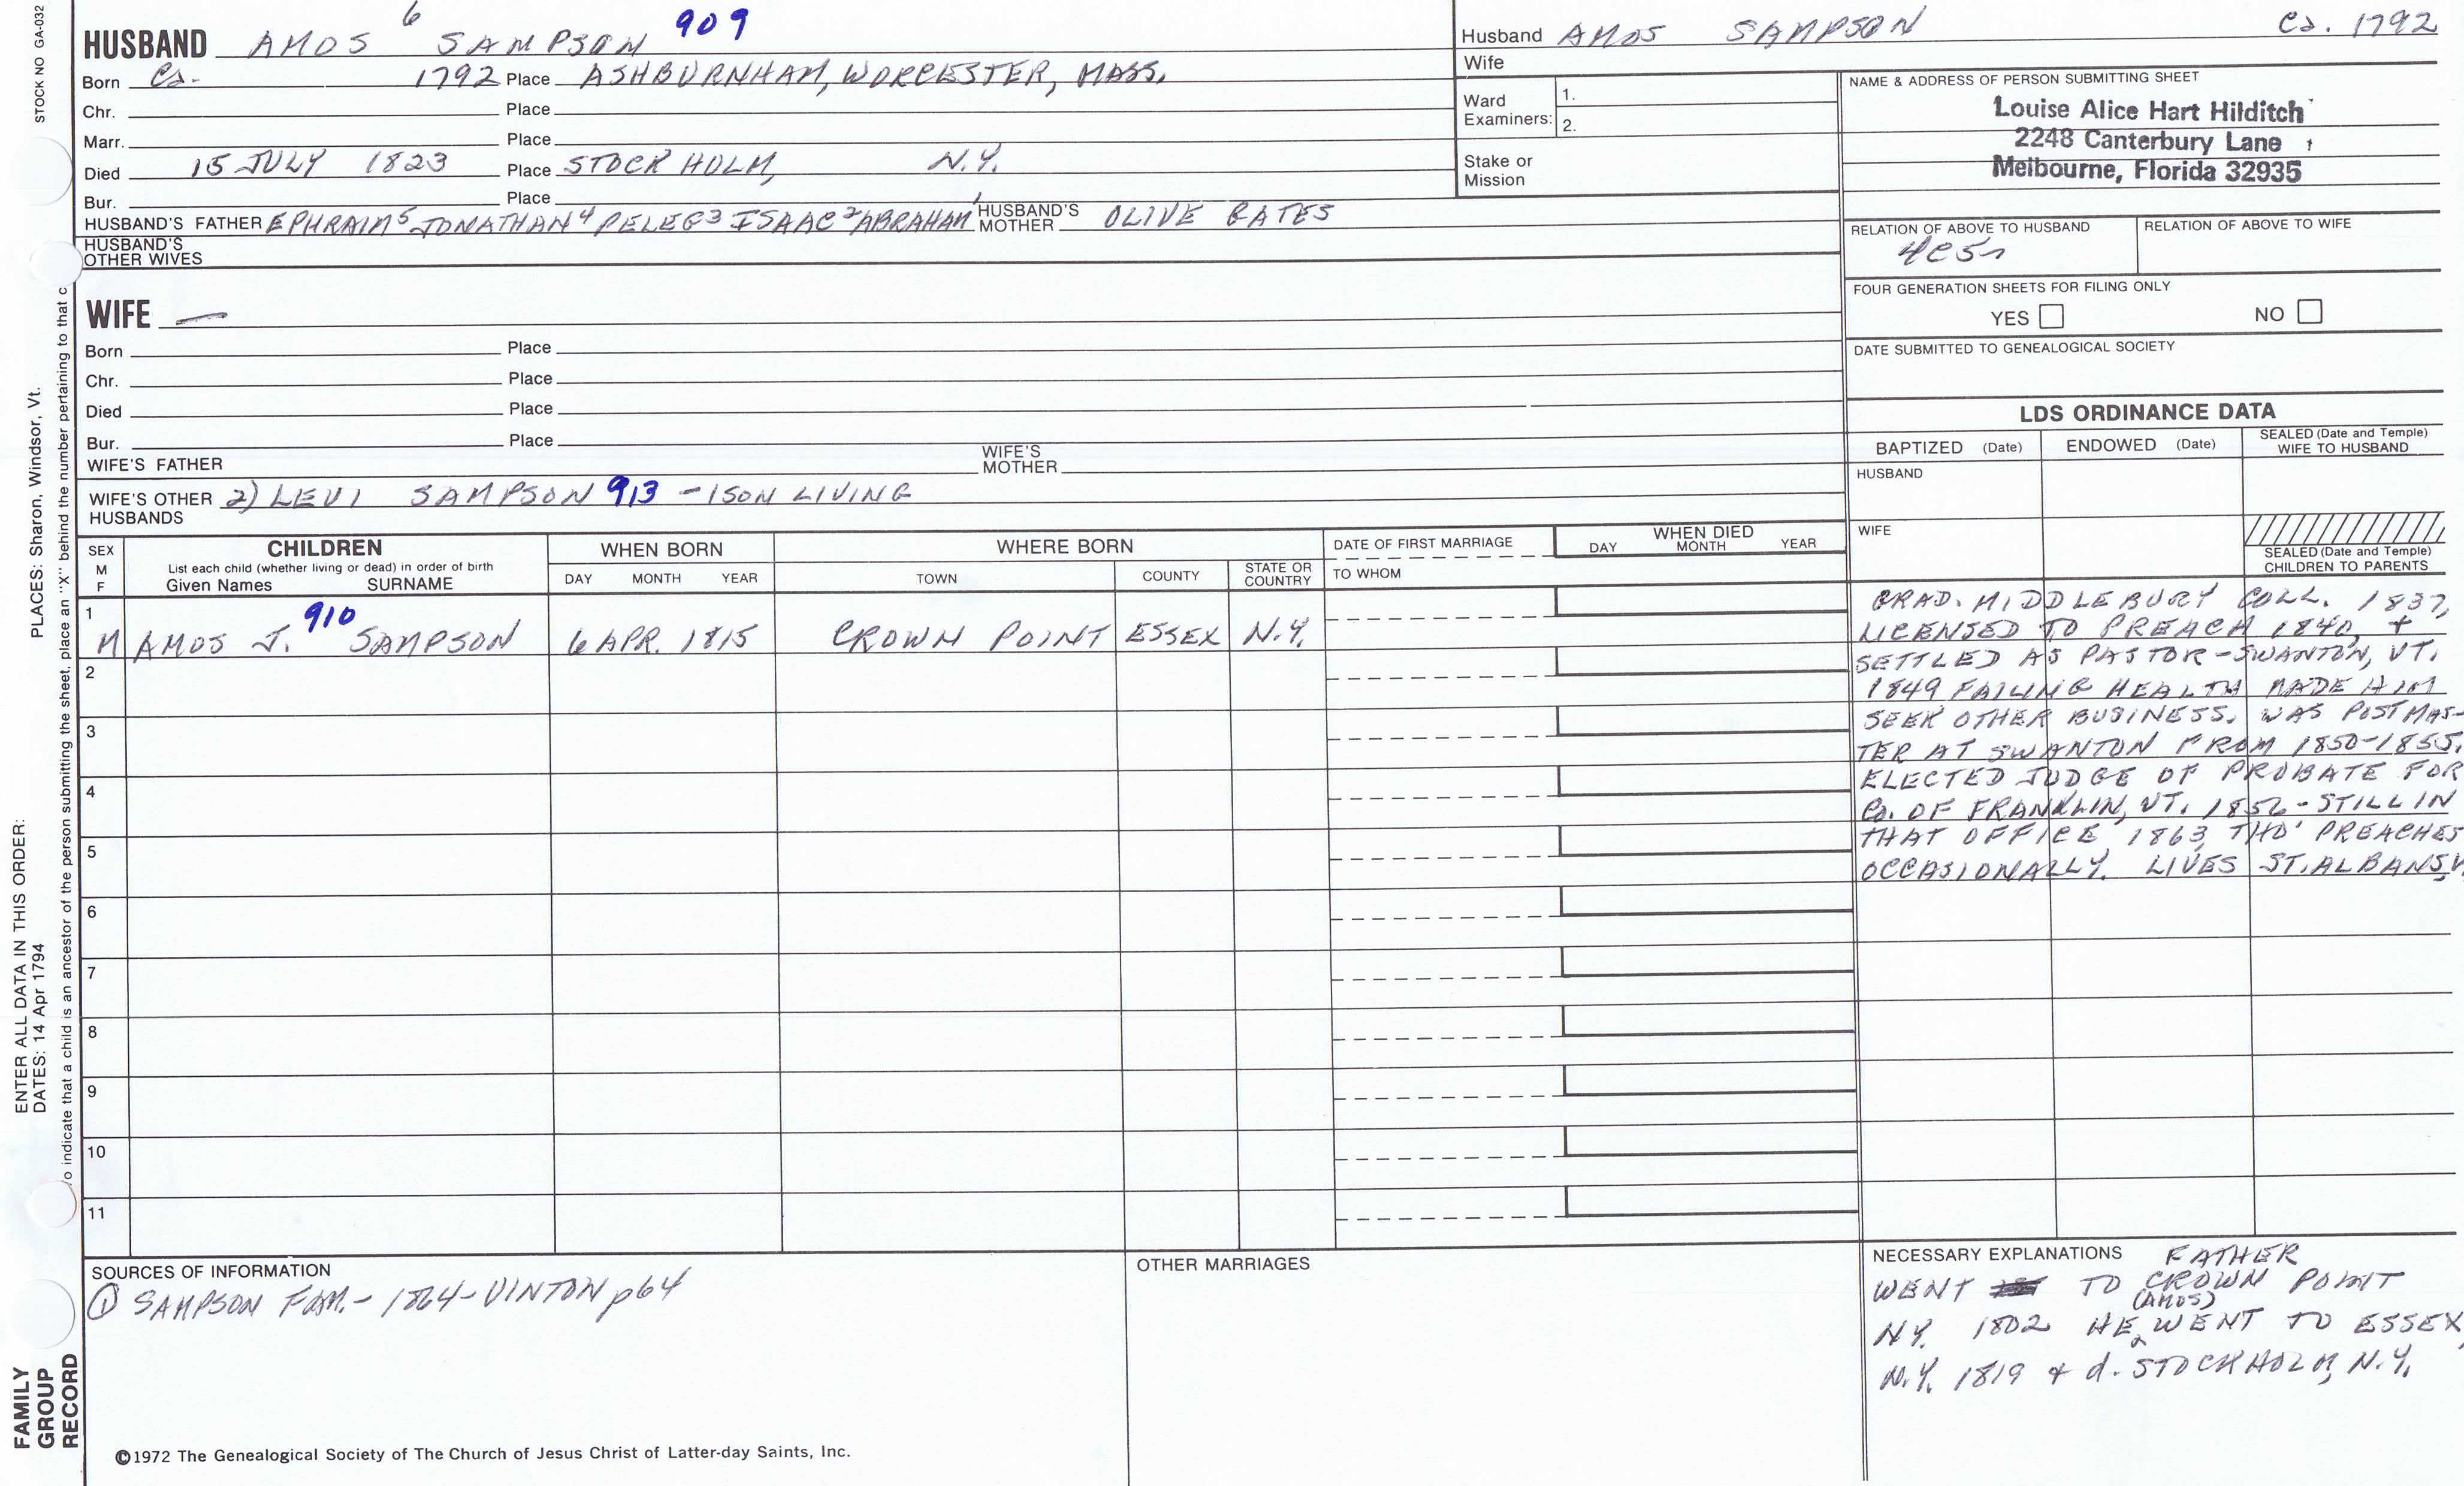 STOCK NO GA-032
PLACES: Sharon, Windsor, Vt.
ENTER ALL DATA IN THIS ORDER:
DATES: 14 Apr 1794
o indicate that a child is an ancestor of the person submitting the sheet, place an "X" behind the number pertaining to that c
FAMILY
GROUP
RECORD
HUSBAND AMOS 6 SAMPSON 909
Born Ca. 1792 Place ASHBURNHAM, WORCESTER, MASS.
Chr. Place
Marr. Place
Died 15 JULY 1823 Place STOCKHOLM, N.Y.
Bur. Place
HUSBAND'S FATHER EPHRAIM5 JONATHAN4 PELEG3 ISAAC2 ABRAHAM1 HUSBAND'S MOTHER OLIVE BATES
HUSBAND'S
OTHER WIVES
WIFE —
Born Place
Chr. Place
Died Place
Bur. Place
WIFE'S FATHER WIFE'S MOTHER
WIFE'S OTHER HUSBANDS 2) LEVI SAMPSON 913 - 1 SON LIVING
Husband AMOS SAMPSON Ca. 1792
Wife
Ward
Examiners:
1.
2.
Stake or
Mission
NAME & ADDRESS OF PERSON SUBMITTING SHEET
Louise Alice Hart Hilditch
2248 Canterbury Lane
Melbourne, Florida 32935
RELATION OF ABOVE TO HUSBAND RELATION OF ABOVE TO WIFE
4C5r
FOUR GENERATION SHEETS FOR FILING ONLY
YES NO
DATE SUBMITTED TO GENEALOGICAL SOCIETY
LDS ORDINANCE DATA
BAPTIZED (Date) ENDOWED (Date) SEALED (Date and Temple) WIFE TO HUSBAND
HUSBAND
WIFE
SEALED (Date and Temple)
CHILDREN TO PARENTS
SEX
M
F
CHILDREN
List each child (whether living or dead) in order of birth
Given Names SURNAME
WHEN BORN
DAY MONTH YEAR
WHERE BORN
TOWN COUNTY STATE OR COUNTRY
DATE OF FIRST MARRIAGE
TO WHOM
WHEN DIED
DAY MONTH YEAR
1
M AMOS J. 910 SAMPSON 6 APR. 1815 CROWN POINT ESSEX N.Y.
2
3
4
5
6
7
8
9
10
11
GRAD. MIDDLEBURY COLL. 1837,
LICENSED TO PREACH 1840, +
SETTLED AS PASTOR - SWANTON, VT.
1849 FAILING HEALTH MADE HIM
SEEK OTHER BUSINESS. WAS POSTMAS-
TER AT SWANTON FROM 1850-1855.
ELECTED JUDGE OF PROBATE FOR
Co. OF FRANKLIN, VT. 1856 - STILL IN
THAT OFFICE 1863, THO' PREACHES
OCCASIONALLY. LIVES ST. ALBANS, V
SOURCES OF INFORMATION
① SAMPSON FAM. - 1864 - VINTON p64
OTHER MARRIAGES
NECESSARY EXPLANATIONS FATHER
WENT TO CROWN POINT
NY. 1802 HE (AMOS) WENT TO ESSEX,
N.Y. 1819 + d. STOCKHOLM, N.Y.
©1972 The Genealogical Society of The Church of Jesus Christ of Latter-day Saints, Inc.